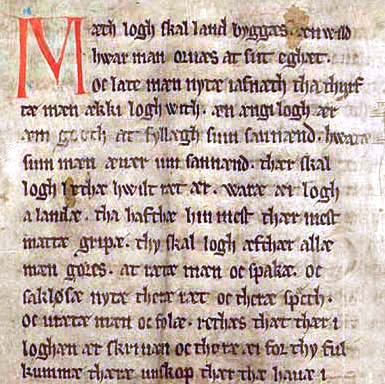 Mæth logh skal land byggæs. æn wild
hwar man orwæs at sit eghæt.
oc late mæn nytæ iafnæth tha thyrf
tæ mæn ækki logh with. æn ængi logh ær
æm goth at fyllægh sum sannænd. hwaræ
sum mæn æuær um sannænd. thær skal
logh lethæ hwilt ræt ær. waræ æi logh
a landæ. tha hafthæ hin mest thær mest
mattæ gripæ. thy skal logh æfthær allæ
mæn gøres. at rætæ mæn oc spakæ. oc
sakløsæ nytæ theræ ræt oc theræ spæth.
oc urætæ mæn oc folæ. rethæs that thær i
loghæn ær skriuan oc thoræ æi for thy ful
kummæ theræ unskop thær the hauæ i